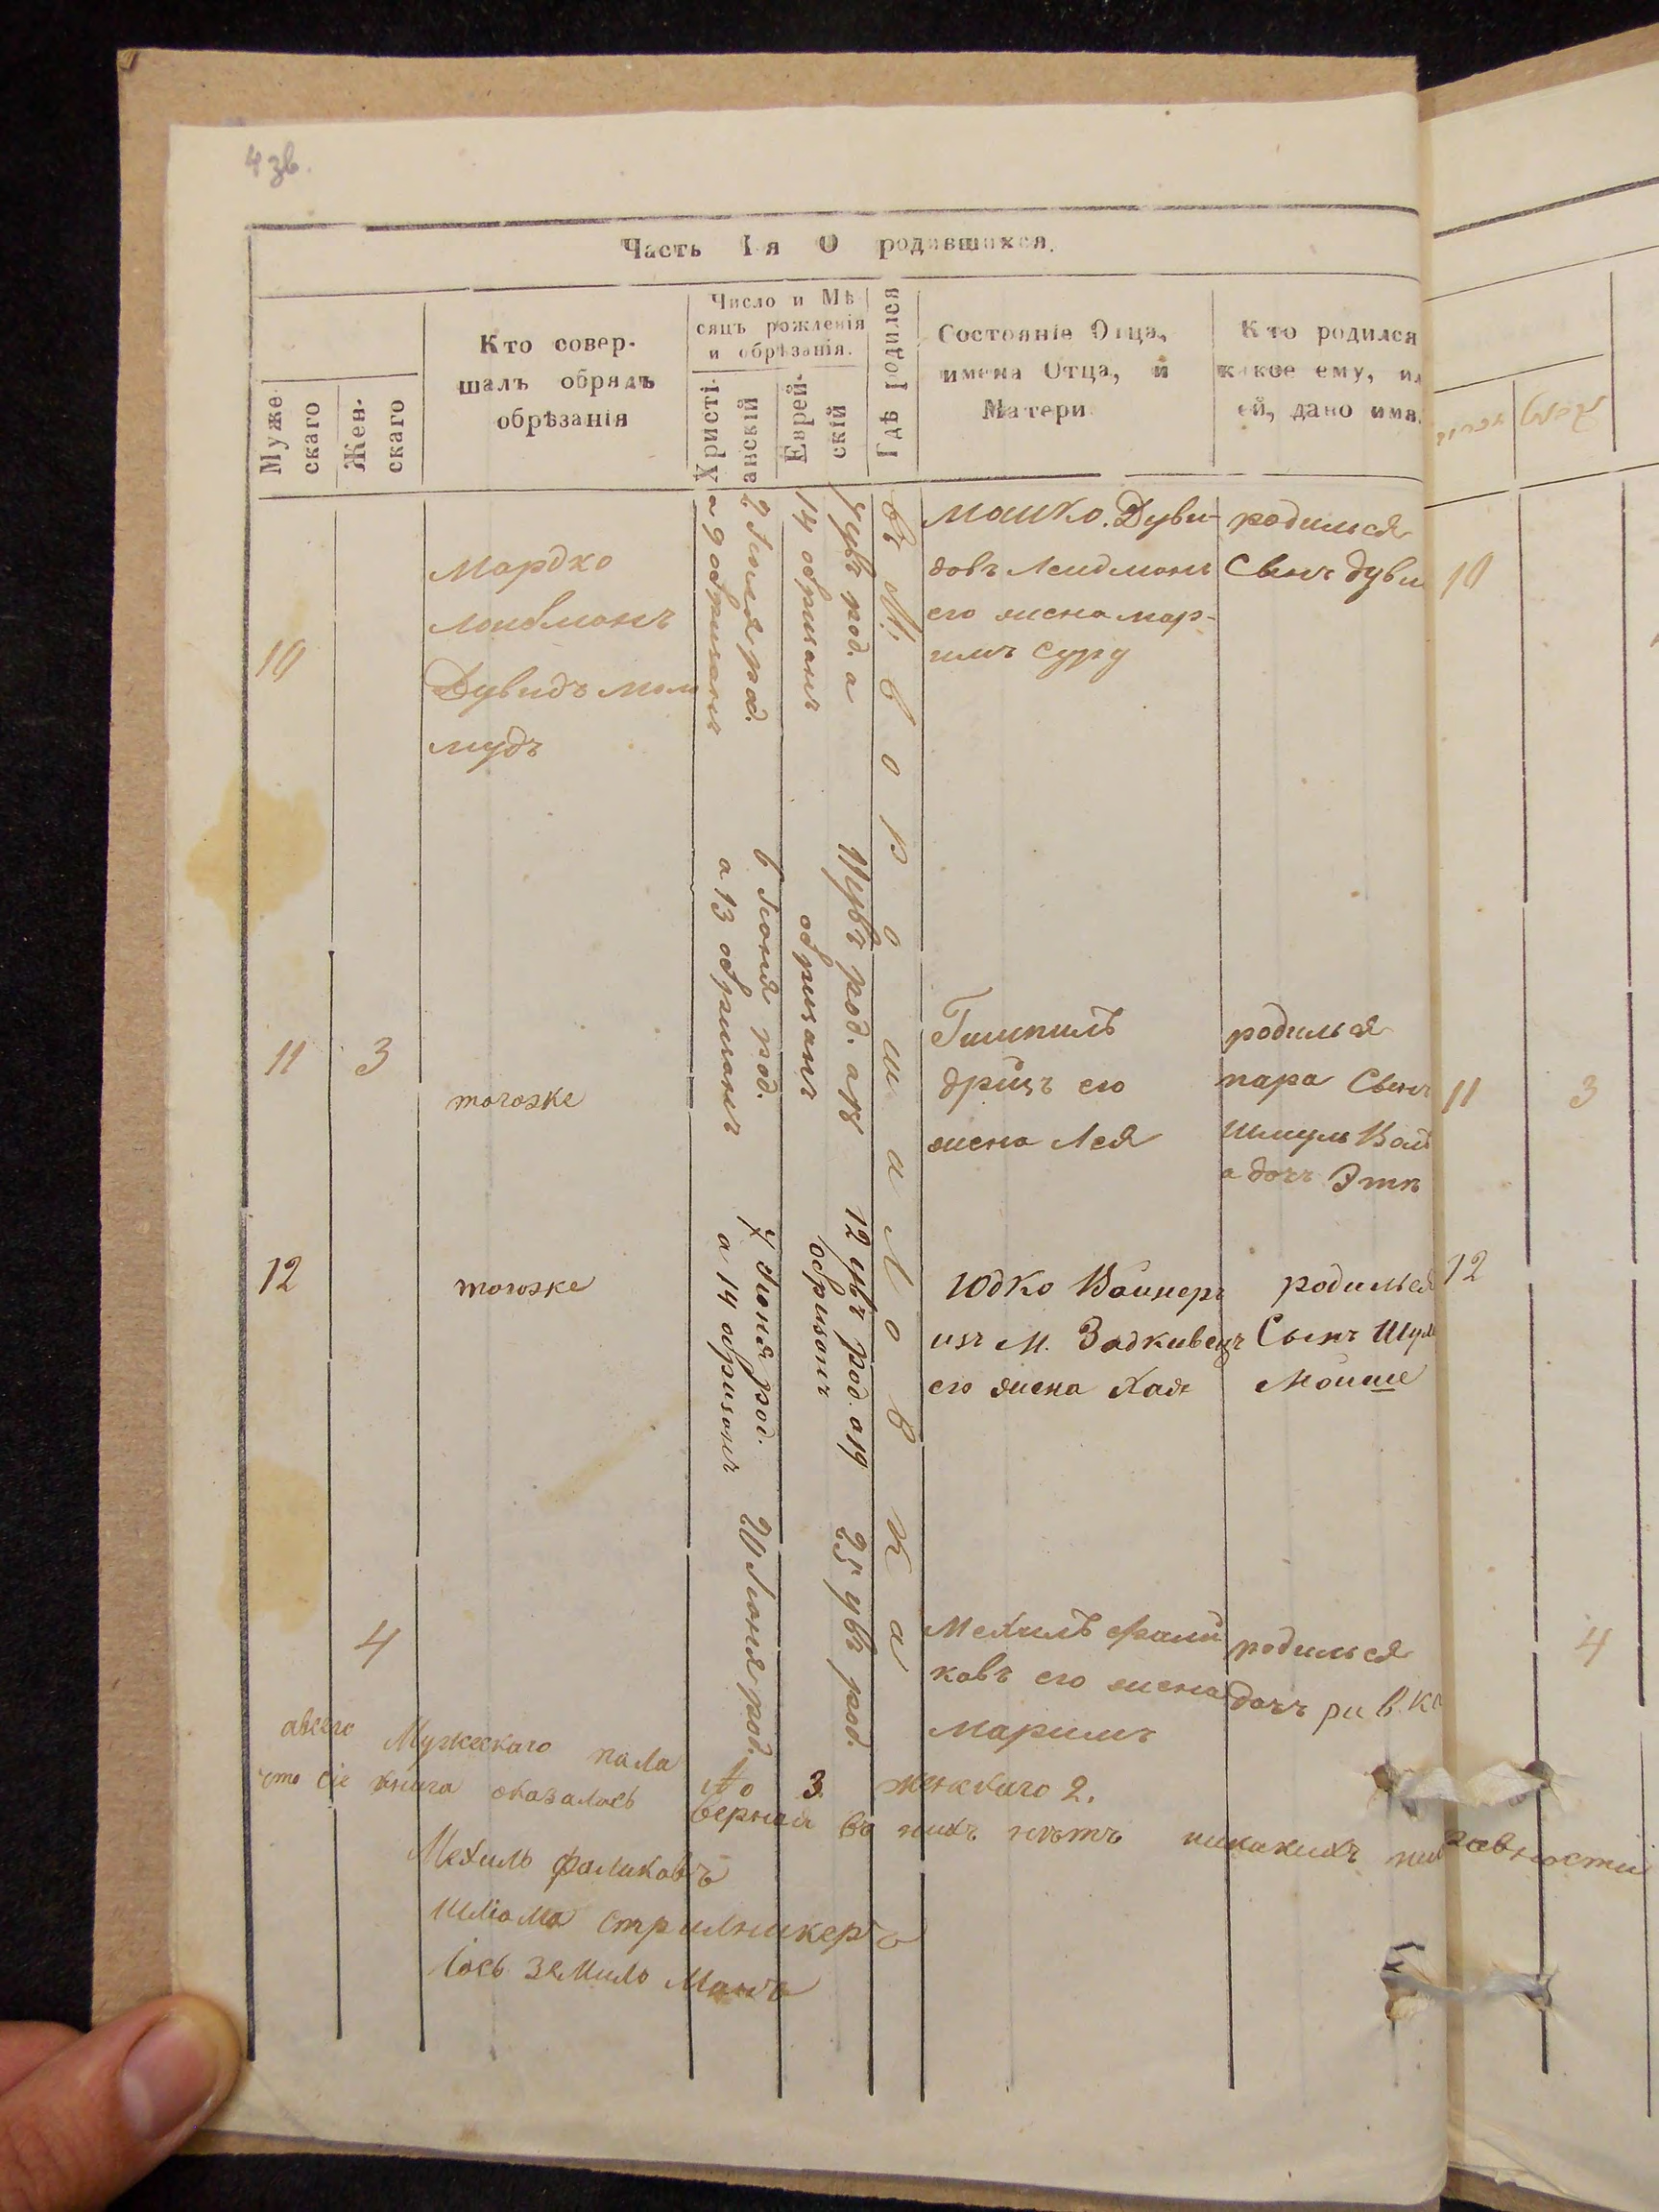 4 зв.
Часть I-я О родившихся.
Муже-
скаго
Жен-
скаго
Кто совер-
шалъ обрядъ
обрѣзанія
Число и Мѣ
сяцъ рожденія
и обрѣзанія.
Христі-
анскій
Еврей-
скій
Гдѣ родился
Состояніе Отца,
имена Отца, и
Матери
Кто родился
какое ему, ил
ей, дано имя.
10
Мардко
Лоибманъ
Дувидъ Мол
мудъ
2 Іюня род.
а 9 обризанъ
7 увъ род. а
14 обризанъ
въ М: Ворошаловка
Мошко. Дуви-
довъ Леидманъ
его жена мар-
имъ Суру
родился
Сынъ дуви
10
11
3
тогоже
6 Іюня род.
а 13 обризанъ
11 увъ род. а 18
обризанъ
Гимпиль
дрицъ его
жена Лея
родился
пара Сынъ
Шмуль Вол
а дочъ Этп
11
3
12
тогоже
7 Іюня род.
а 14 обризанъ
12 увъ род. а 19
обризанъ
Юдко Вайнеръ
изъ М. Задкивецъ
его жена Хая
родился
Сынъ Шул
Мойше
12
4
20 Іюня род.
25 увъ род.
Мехиль Фали
ковъ его жена
Маримъ
родился
дочъ рив.ка
4
авсего Мужескаго пала № 3 женскаго 2.
что сіе книга оказалась верная въ нихъ нѣтъ никакихъ
Мехиль Фаликовъ
Шліома Стрилникеръ
Іось Зелмило Манъ